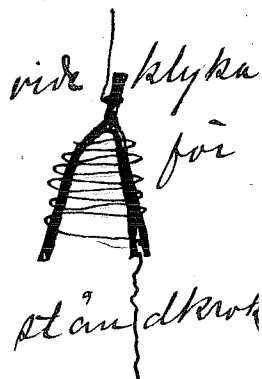 vide klyka
för
ståndkrok